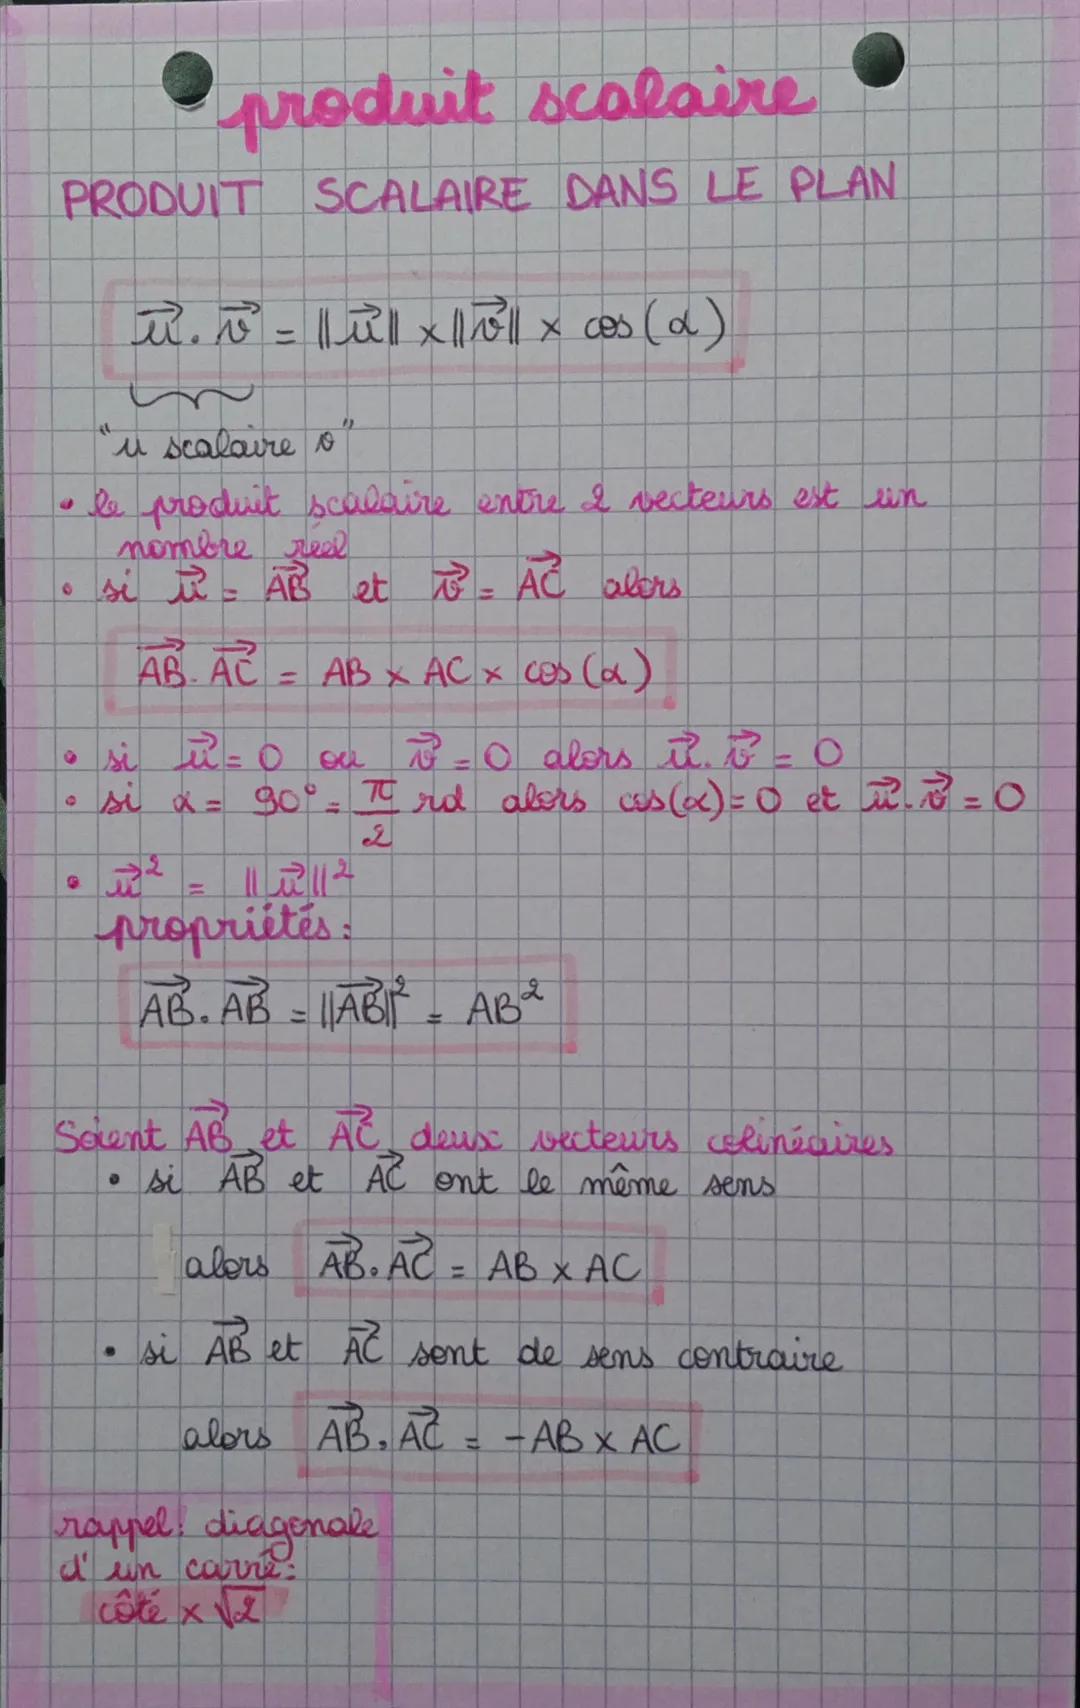 produit scalaire
PRODUIT SCALAIRE DANS LE PLAN
u⃗ . v⃗ = ||u⃗|| × ||v⃗|| × cos (α)
"u scalaire v"
• le produit scalaire entre 2 vecteurs est un
nombre réel
• si u⃗ = AB⃗ et v⃗ = AC⃗ alors
AB⃗ . AC⃗ = AB × AC × cos (α)
• si u⃗ = 0 ou v⃗ = 0 alors u⃗ . v⃗ = 0
• si α = 90° = π/2 rd alors cos(α) = 0 et u⃗ . v⃗ = 0
• u⃗² = ||u⃗||²
propriétés :
AB⃗ . AB⃗ = ||AB⃗||² = AB²
Soient AB⃗ et AC⃗ deux vecteurs colinéaires
• si AB⃗ et AC⃗ ont le même sens
alors AB⃗ . AC⃗ = AB × AC
• si AB⃗ et AC⃗ sont de sens contraire
alors AB⃗ . AC⃗ = - AB × AC
rappel : diagonale
d'un carré :
côté × √2